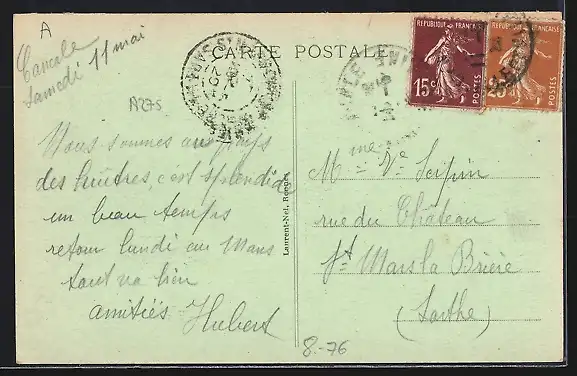 A
Cancale
Samedi 11 mai
A275
CARTE POSTALE
Nous sommes au pays
des huîtres, c'est splendide
un beau temps
retour lundi au Mans
tout va bien
amitiés Hubert
Laurent-Nel, Rennes
REPUBLIQUE FRANÇAISE
15c POSTES
REPUBLIQUE FRANÇAISE
POSTES
Mme Ve
rue du Château
St Mars la Brière
(Sarthe)
8.-76